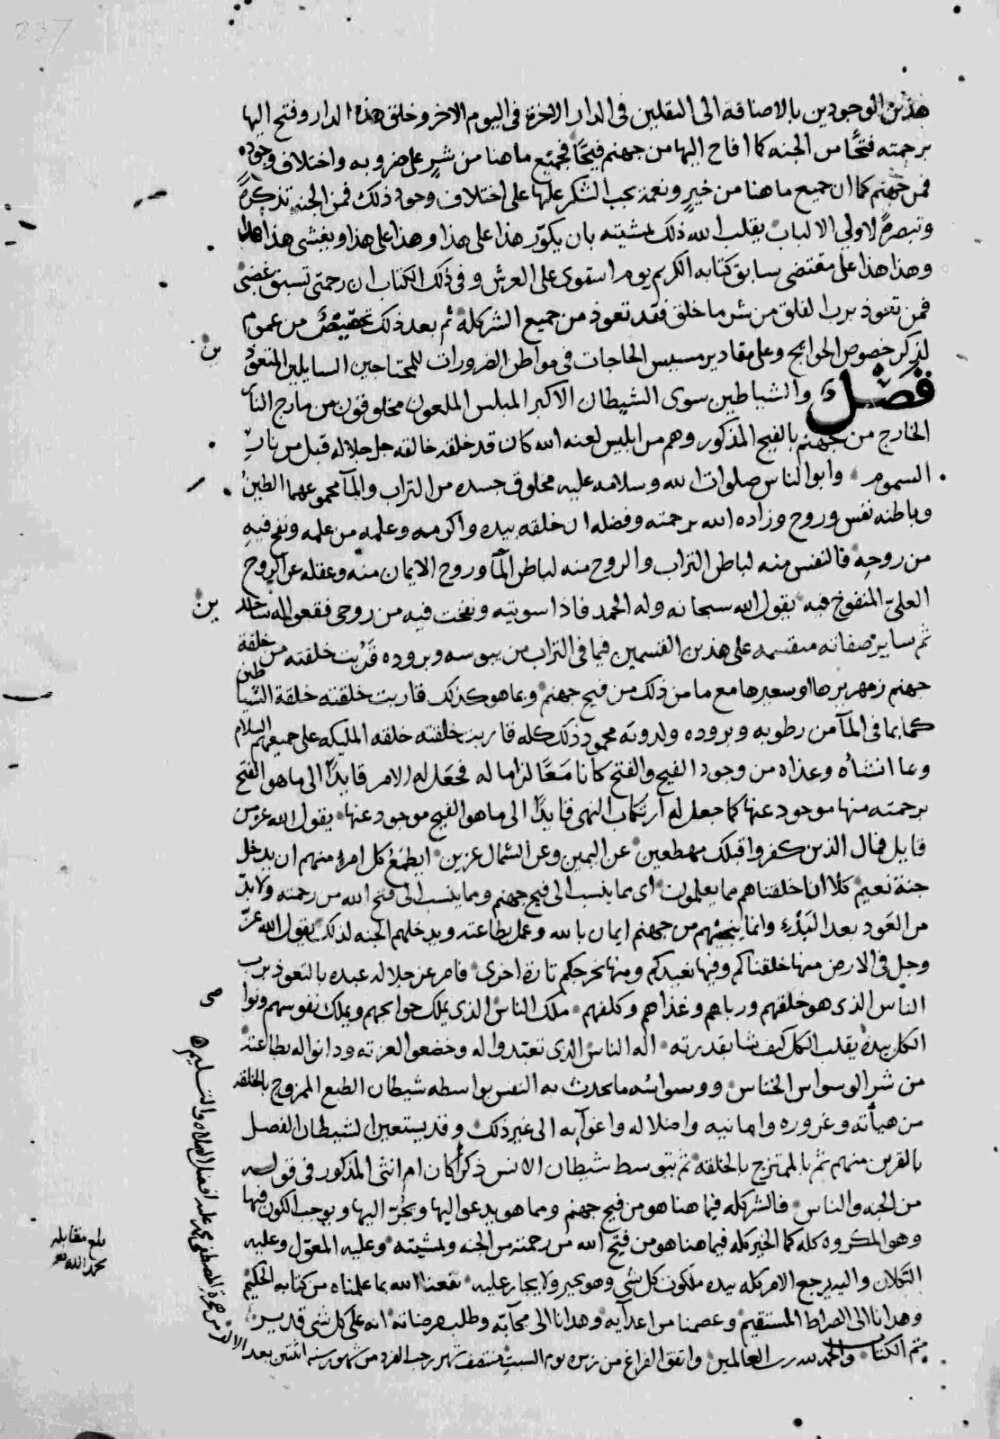 هذين الوجودين بالاضافة الى الثقلين فى الدار الاخرة فى اليوم الاخر وخلق هذه الدار وفتح اليها
برحمته فتحًا من الجنه كما افاح اليها من جهنم فيحًا فجميع ما هنا من شر على ضروبه واختلاف وجوده
فمن جهنم كما ان جميع ما هنا من خير ونعمة يجب الشكر عليها على اختلاف وجود ذلك فمن الجنه تذكرة
وتبصرة لاولي الالباب يقلب الله ذلك بمشيته بان يكور هذا على هذا وهذا على هذا ويغشى هذا هذا
وهذا هذا على مقتضى سابق كتابه الكريم يوم استوى على العرش وفى ذلك الكتاب ان رحمتى تسبق غضبى
فمن تعوذ برب الفلق من شر ما خلق فقد تعوذ من جميع الشر كله ثم بعد ذلك تخصيص من عموم
لذكر خصوص الحوايج وعلى مقادير مسيس الحاجات فى مواطن الضرورات للمحتاجين السايلين المتعوذ
ين
فصل والشياطين سوى الشيطان الاكبر المبلس الملعون مخلوقون من مارج النار
الخارج من جهنم بالفيح المذكور وهم من ابليس لعنه الله كان قد خلقه خالقه جل جلاله قبل من نار
السموم وابو الناس صلوات الله وسلامه عليه مخلوق جسده من التراب والمآ مجموعهما الطين
وباطنه نفس وروح وزاده الله برحمته وفضله ان خلقه بيده واكرمه وعلمه من علمه ونفخ فيه
من روحه فالنفس منه لباطن التراب والروح منه لباطن المآ وروح الايمان منه وعقله عن الروح
العلي المنفوخ فيه يقول الله سبحانه وله الحمد فاذا سويته ونفخت فيه من روحى فقعوا له ساجد
ين
ثم ساير صفاته منقسمه على هذين القسمين فما فى التراب من يبوسه وبروده قربت خلقته من خلقة
جهنم زمهريرها او سعيرها مع ما من ذلك من فيح جهنم وبما هو كذلك قاربت خلقته خلقة الشيا
طين
كما بما فى المآ من رطوبه وبروده ولدونه محمود ذلك كله قاربت خلقته خلقه المليكه على جميعهم السلام
وبما انشأه وغذاه من وجود الفيح والفتح كانا مَعًا لزاما له فجعل له الامر قايدًا الى ما هو الفتح
برحمته منها موجود عنها كما جعل له ارتكاب النهى قايدًا الى ما هو الفيح موجود عنها يقول الله عز من
قايل فمال الذين كفروا قبلك مهطعين عن اليمين وعن الشمال عزين ايطمع كل امرئ منهم ان يدخل
جنة نعيم كلا انا خلقناهم مما يعلمون اى مما ينسب الى فيح جهنم ومما ينسب الى فتح الله من رحمته ولا بد
من العَود بعد البَدْء وانما ينجيهم من جهنم ايمان بالله وعمل بطاعته ويدخلهم الجنه لذلك يقول الله عزّ
وجل فى الارض منها خلقناكم وفيها نعيدكم ومنها نخرجكم تارة اخرى فامر عز جلاله عبده بالتعوذ برب
الناس الذى هو خلقهم ورباهم وغذاهم وكلفهم ملك الناس الذى يملك حوايجهم ويملك نفوسهم ونوا
صى
الكل بيده يقلب الكل كيف شا بقدرته اله الناس الذى تعبدوا له وخضعوا لعزته ودانوا له بطاعته
من شر الوسواس الخناس ووسوائسه ما يحدث به النفس بواسطه شيطان الطبع الممزوج بالخلقه
من هيأته وغروره وامانيه واضلاله واغوآيه الى غير ذلك وقد يستعين الشيطان الفصل
بالقرين منهم ثم بالممتزج بالخلقه ثم بتوسط شيطان الانس ذكرًا كان ام انثى المذكور فى قوله
من الجنه والناس فالشر كله فيما هنا هو من فيح جهنم ومما هو يدعو اليها ويجُرّ اليها ويوجب الكون فيها
وهو المكروه كله كما الخير كله فيما هنا هو من فتح الله من رحمته من الجنه وبمشيته وعليه المعوّل وعليه
التكلان واليه يرجع الامر كله بيده ملكوت كل شى وهو يجير ولا يجار عليه نفعنا الله بما علمناه من كتابه الحكيم
وهدانا الى الصراط المستقيم وعصمنا من اعدآيه وهدانا الى محآبّه وطلب مرضاته انه على كل شى قدير
تم الكتاب والحمد لله رب العالمين واتفق الفراغ من يوم السبت منتصف شهر رجب الفرد من شهور سنه اثنتين بعد
الالف من هجرة المصطفى محمد عليه افضل الصلاه والتسليم
بلغ مقابله
بحمد الله